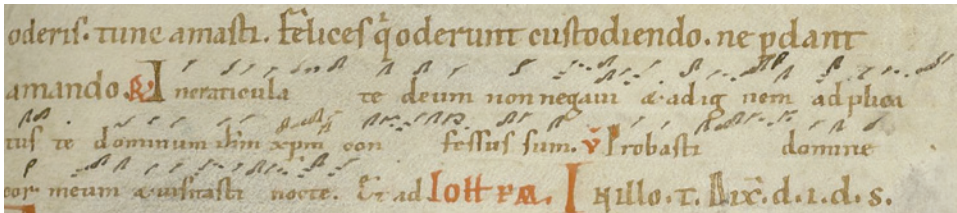 oderis. tunc amasti. felices q̇ oderunt custodiendo. ne ꝑdant
amando. ℟ In craticula te deum non negaui & ad ignem ad plica
tus te dominum ihm xpm con fessus sum. ℣ Probasti domine
cor meum & uisitasti nocte. Et ad
In illo. t. Dix̄. d. i. d. s.